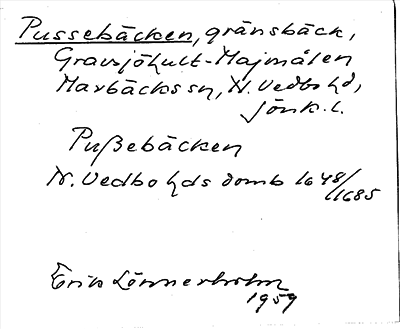 Pussebäcken, gränsbäck,
Gravsjöhult-Majmålen
Marbäcks sn, N. Vedbo hd,
Jönk. l.
Pußebäcken
N. Vedbo hds domb 1648/
1685
Erik Lönnerholm
1959